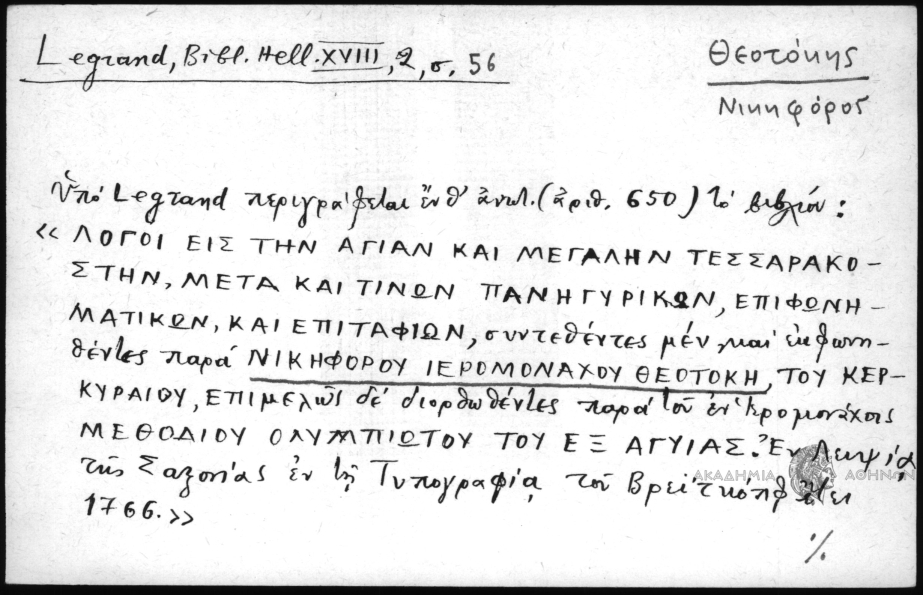 Legrand, Bibl. Hell. XVIII, 2, σ. 56
Θεοτόκης
Νικηφόρος
Ὑπό Legrand περιγράφεται ἔνθ' ἀνωτ. (ἀριθ. 650) τό βιβλίον:
« ΛΟΓΟΙ ΕΙΣ ΤΗΝ ΑΓΙΑΝ ΚΑΙ ΜΕΓΑΛΗΝ ΤΕΣΣΑΡΑΚΟ-
ΣΤΗΝ, ΜΕΤΑ ΚΑΙ ΤΙΝΩΝ ΠΑΝΗΓΥΡΙΚΩΝ, ΕΠΙΦΩΝΗ-
ΜΑΤΙΚΩΝ, ΚΑΙ ΕΠΙΤΑΦΙΩΝ, συντεθέντες μέν καί ἐκφωνη-
θέντες παρά ΝΙΚΗΦΟΡΟΥ ΙΕΡΟΜΟΝΑΧΟΥ ΘΕΟΤΟΚΗ, ΤΟΥ ΚΕΡ-
ΚΥΡΑΙΟΥ, ΕΠΙΜΕΛῶς δέ διορθωθέντες παρά τοῦ ἐν Ἱερομονάχοις
ΜΕΘΟΔΙΟΥ ΟΛΥΜΠΙΩΤΟΥ ΤΟΥ ΕΞ ΑΓΥΙΑΣ. Ἐν Λειψίᾳ
τῆς Σαξονίας ἐν τῇ Τυπογραφίᾳ τοῦ Βρεΐτκόπφ
1766.»
ΑΚΑΔΗΜΙΑ ΑΘΗΝΩΝ
%